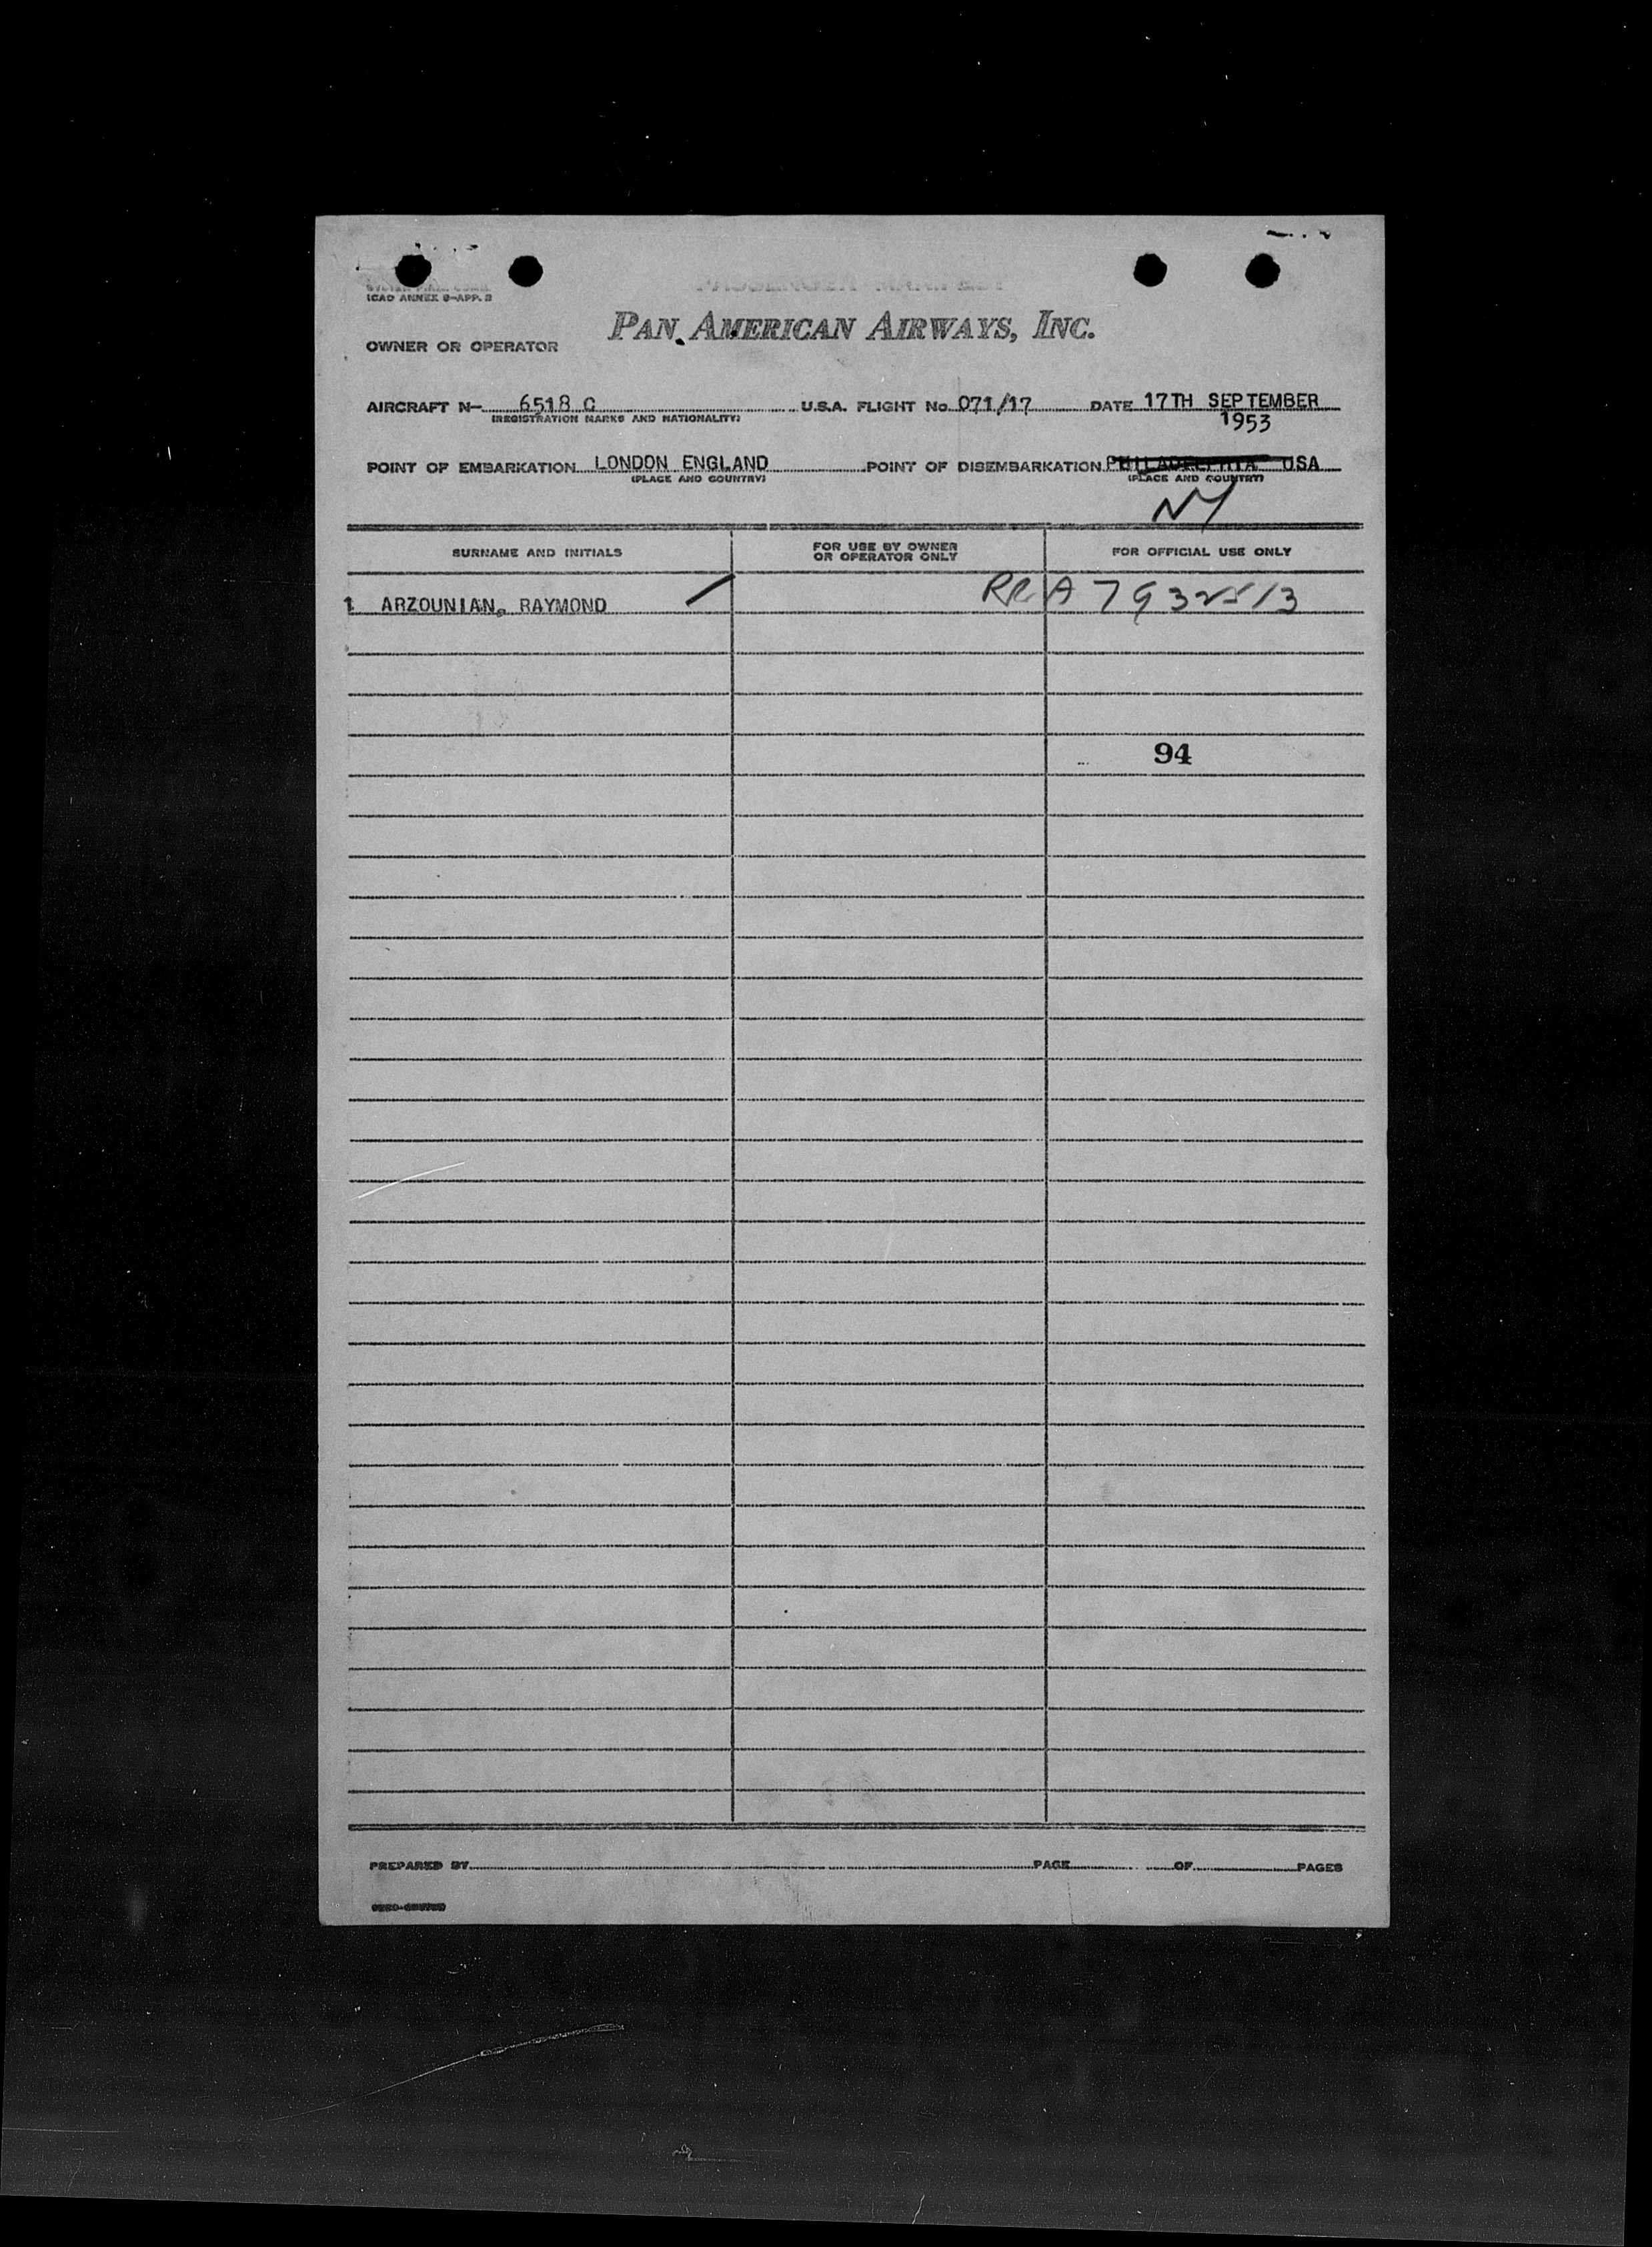 ICAO ANNEX 9-APP. 3
OWNER OR OPERATOR PAN AMERICAN AIRWAYS, INC.
AIRCRAFT N- 6518 C U.S.A. FLIGHT No. 071/17 DATE 17TH SEPTEMBER
(REGISTRATION MARKS AND NATIONALITY) 1953
POINT OF EMBARKATION LONDON ENGLAND POINT OF DISEMBARKATION PHILADELPHIA USA
(PLACE AND COUNTRY) (PLACE AND COUNTRY)
NY
SURNAME AND INITIALS FOR USE BY OWNER OR OPERATOR ONLY FOR OFFICIAL USE ONLY
1 ARZOUNIAN, RAYMOND / RRA 7932513
94
PREPARED BY PAGE OF PAGES